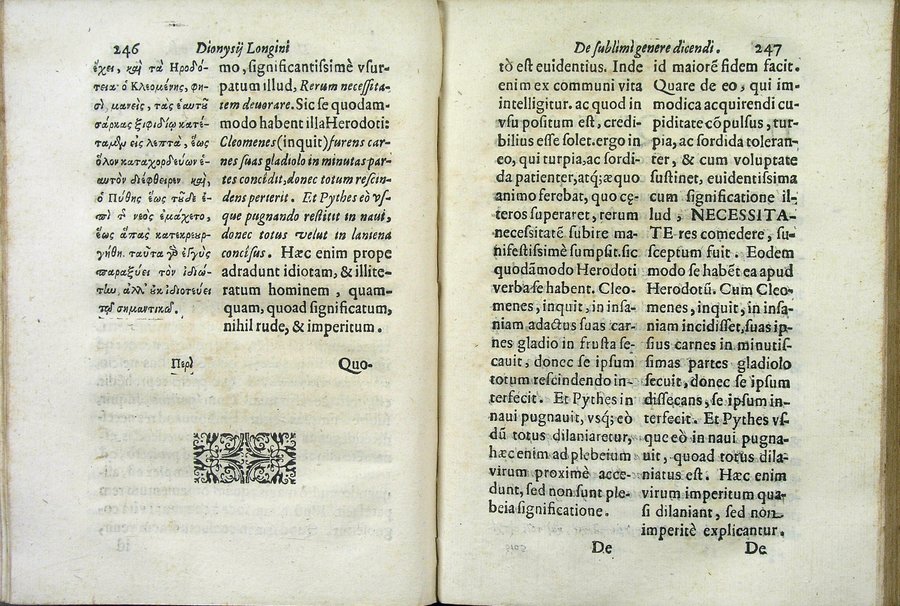 246 Dionysij Longini
ἔχει, καὶ τὰ Ἡροδό-
τεια· ὁ Κλεομένης, φη-
σὶ, μανεὶς, τὰς ἑαυτοῦ
σάρκας ξιφιδίῳ κατέ-
ταμεν εἰς λεπτὰ, ἕως
ὅλον καταχορδεύων ἑ-
αυτὸν διέφθειρεν καὶ,
ὁ Πύθης ἕως τοῦδε ἐ-
πὶ τ νεὸς ἐμάχετο,
ἕως ἅπας κατεκρεουρ-
γήθη. ταῦτα γὸ ἐγγὺς
παραξύει τὸν ἰδιώ-
την, ἀλλ' οὐκ ἰδιωτεύει
τῷ σημαντικῶς.
Περὶ
mo, significantissimè vsur-
patum illud, Rerum necessita-
tem deuorare. Sic se quodam-
modo habent illa Herodoti:
Cleomenes (inquit) furens car-
nes suas gladiolo in minutas par-
tes concidit, donec totum rescin-
dens perterit. Et Pythes eò vs-
que pugnando restitit in naui,
donec totus velut in laniena
concisus. Hæc enim prope
adradunt idiotam, & illite-
ratum hominem, quam-
quam, quoad significatum,
nihil rude, & imperitum.
Quo-
De sublimi genere dicendi. 247
tò est euidentius. Inde
enim ex communi vita
intelligitur. ac quod in
vsu positum est, credi-
bilius esse solet. ergo in
eo, qui turpia, ac sordi-
da patienter, atq; æquo
animo ferebat, quo cę-
teros superaret, rerum
necessitatẽ subire ma-
nifestissimè sumpsit. sic
quodãmodo Herodoti
verba se habent. Cleo-
menes, inquit, in insa-
niam adactus suas car-
nes gladio in frusta se-
cauit, donec se ipsum
totum rescindendo in-
terfecit. Et Pythes in
naui pugnauit, vsq; eò
dũ totus dilaniaretur,
hæc enim ad plebeium
virum proximè acce-
dunt, sed non sunt ple-
beia significatione.
De
id maiorẽ fidem facit.
Quare de eo, qui im-
modica acquirendi cu-
piditate cõpulsus, tur-
pia, ac sordida toleran-
ter, & cum voluptate
sustinet, euidentissima
cum significatione il-
lud, NECESSITA-
TE res comedere, su-
sceptum fuit. Eodem
modo se habẽt ea apud
Herodotũ. Cum Cleo-
menes, inquit, in insa-
niam incidisset, suas ip-
sius carnes in minutis-
simas partes gladiolo
secuit, donec se ipsum
dissecans, se ipsum in-
terfecit. Et Pythes vs-
que eò in naui pugna-
uit, quoad totus dila-
niatus est. Hæc enim
virum imperitum qua-
si dilaniant, sed non
imperitè explicantur.
De